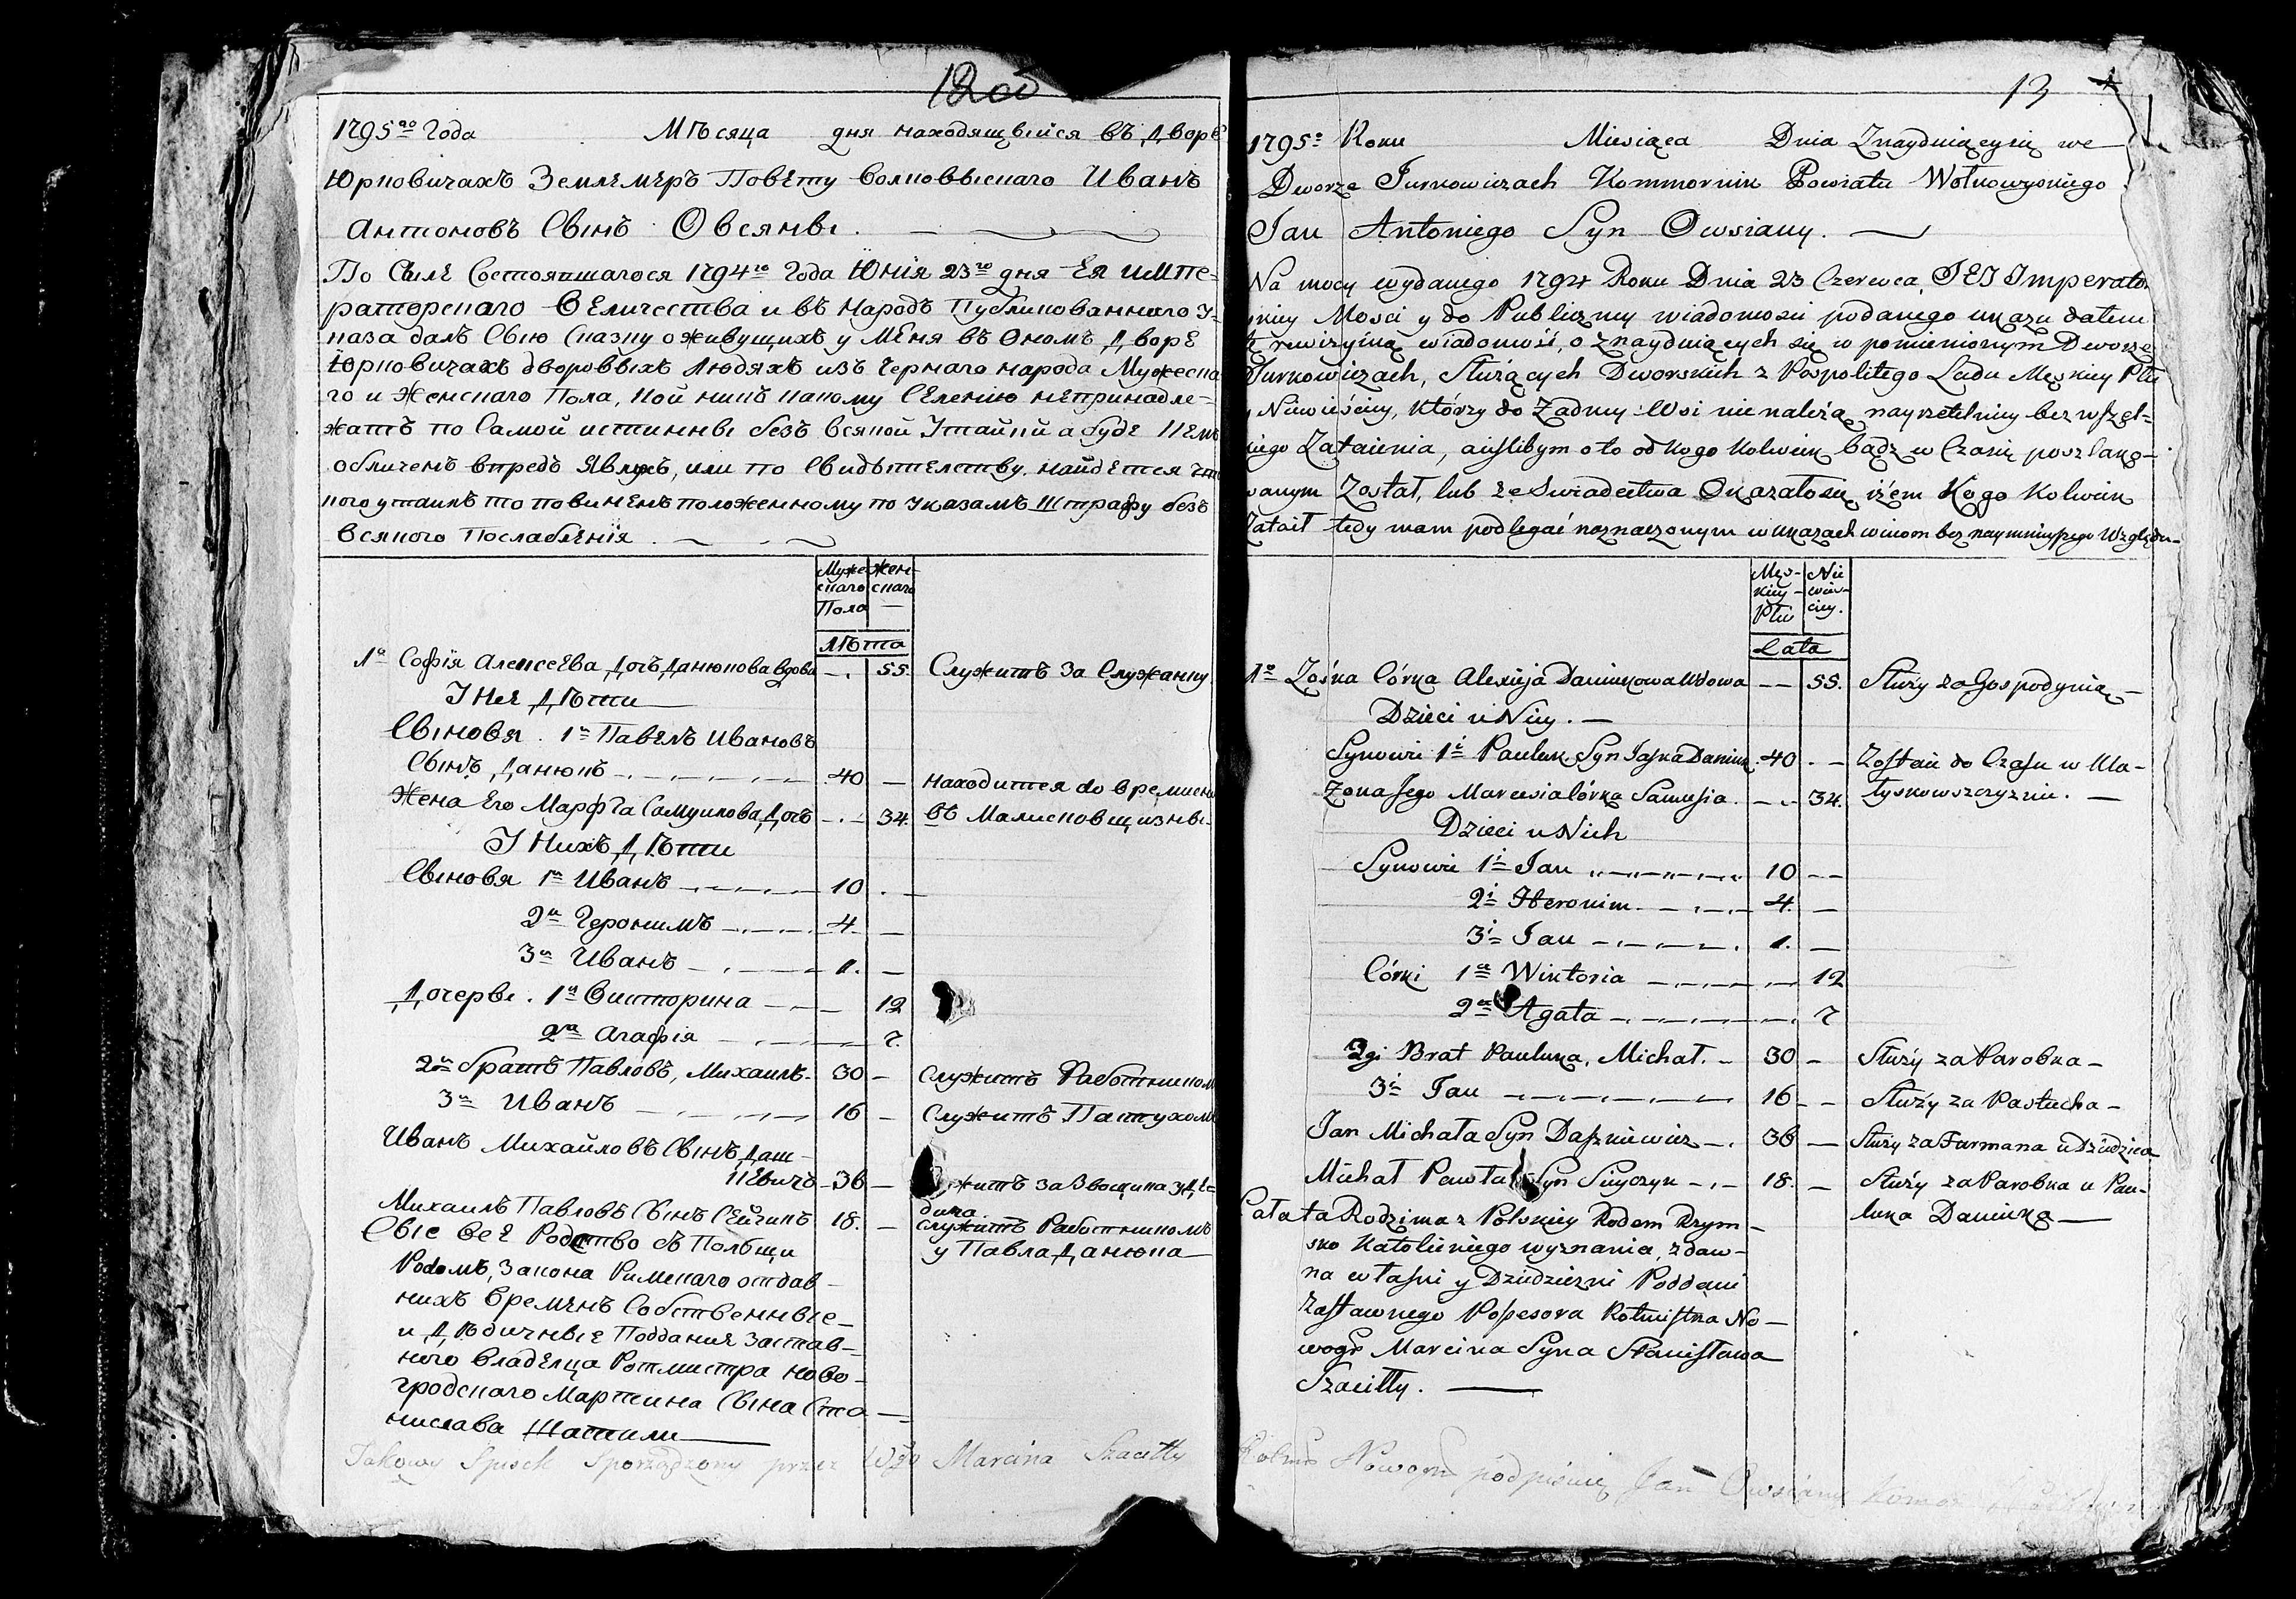 12 об
1795го Года Мѣсяца дня находящыйся въ Дворѣ
Юрковичахъ Землемеръ Повету Волковыскаго Иванъ
Антоновъ Сынъ Овсяны.
По Силе Состоявшагося 1794го Года Юнія 23го дня Ея Импе-
раторскаго Величества и въ Народъ Публикованнаго У-
каза далъ Сію Сказку о живущихъ у Меня въ Ономъ Дворе
Юрковичахъ дворовыхъ Людяхъ изъ Чернаго народа Мужеска
го и Женскаго Пола, кои никъ какому Селенію непринадле-
жатъ по Самой истинны безъ всякой Утайки а буде Кемъ
обличенъ впредь Явлюсь, или по Свидѣтелству найдется что
кого утаилъ то повиненъ положенному по Указамъ Штрафу безъ
всякого Послабленія.
Муже
скаго
Пола
Жен-
скаго
Лѣта
1я Софія Алексеева Дочъ Данюкова вдова 55. Служитъ За Служанку
У Нея Дѣти
Сыновя. 1й Павелъ Ивановъ
Сынъ Данюкъ 40 — находится до времени
Жена Его Марфта Самуилова Дочъ 34. въ Малисковщизны
У Нихъ Дѣти
Сыновя 1й Иванъ 10
2й Геронимъ 4
3й Иванъ 1.
Дочеры. 1я Викторина 12
2я Агафія 7.
2й братъ Павловъ, Михаилъ 30 — Служитъ Работником
3й Иванъ 16 — Служитъ Пастухомъ
Иванъ Михайловъ Сынъ Даш-
кевичъ 36 — житъ за Звощика у Дѣ-
дича
Михаилъ Павловъ Сынъ Сейчикъ 18. — служитъ Работникомъ
у Павла Данюка
Сіе все Родство съ Полщи
Родомъ, Закона Римскаго отдав-
нихъ Временъ Собственные
и Дѣдичные Поддание Застав-
ного Владелца Ротмистра Ново-
гродскаго Мартина Сына Ста
нислава Шатили
Takowy Spisek Sporządzony przez Wgo Marcina Szacitty
13
1795o Roku Miesiąca Dnia Znayduiącysię we
Dworze Jurkowiczach Kommornik Powiatu Wołkowyskiego
Jan Antoniego Syn Owsiany.
Na mocy wydanego 1794 Roku Dnia 23 Czerwca, JEJ Imperator
skiey Mosci y do Publiczney wiadomosci podanego ukazu dałem
tę rewizyiną wiadomość, o znayduiących się w pomienionym Dworze
Jurkowiczach, Służących Dworskich z Pospolitego Ludu Męskiey Płci
y Niewieściey, którzy do Żadney Wsi nie należą nayrzetelniey bez wszel-
kiego Zataienia, aieslibym o to od kogo kolwiek bądz w Czasie poszlako-
wanym Został, lub ze Swiadectwa Okazałosię iżem Kogo Kolwiek
Zataił tedy mam podlegać naznaczonym w ukazach winom bez naymnieyszego Względu
Męs-
kiey
Płci
Nie
wieś-
ciey.
Lata
1a Zośka Córka Alexieja Daniukowa Wdowa — 55. Służy za Gospodynią
Dzieci u Niey.
Synowie 1y Pauluk Syn Jaśka Daniuk 40 — Zostaie do Czasu w Ma-
Żona Jego Marcesia Córka Samusia 34. łyskowszczyznie.
Dzieci u Nich
Synowie 1y Jan 10
2i Heronim 4.
3i Jan 1.
Córki 1a Wiktoria 12
2a Agata 7
2gi Brat Pauluka, Michał. 30 — Służy za Parobka
3i Jan 16 — Służy za Pastucha
Jan Michała Syn Daszkiewicz 36 — Służy za Furmana u Dziedzica
Michał Pawła Syn Sieyczyk 18. — Służy za Parobka u Pau-
luka Daniuka
Cała ta Rodzina z Polskiey Rodem Rzym-
sko Katolickiego wyznania, z daw-
na własni y Dziedziczni Poddani
Zastawnego Possesora Rotmistrza No-
wogr Marcina Syna Stanisława
Szacitty.
Rotmis Nowogr podpisuię Jan Owsiany